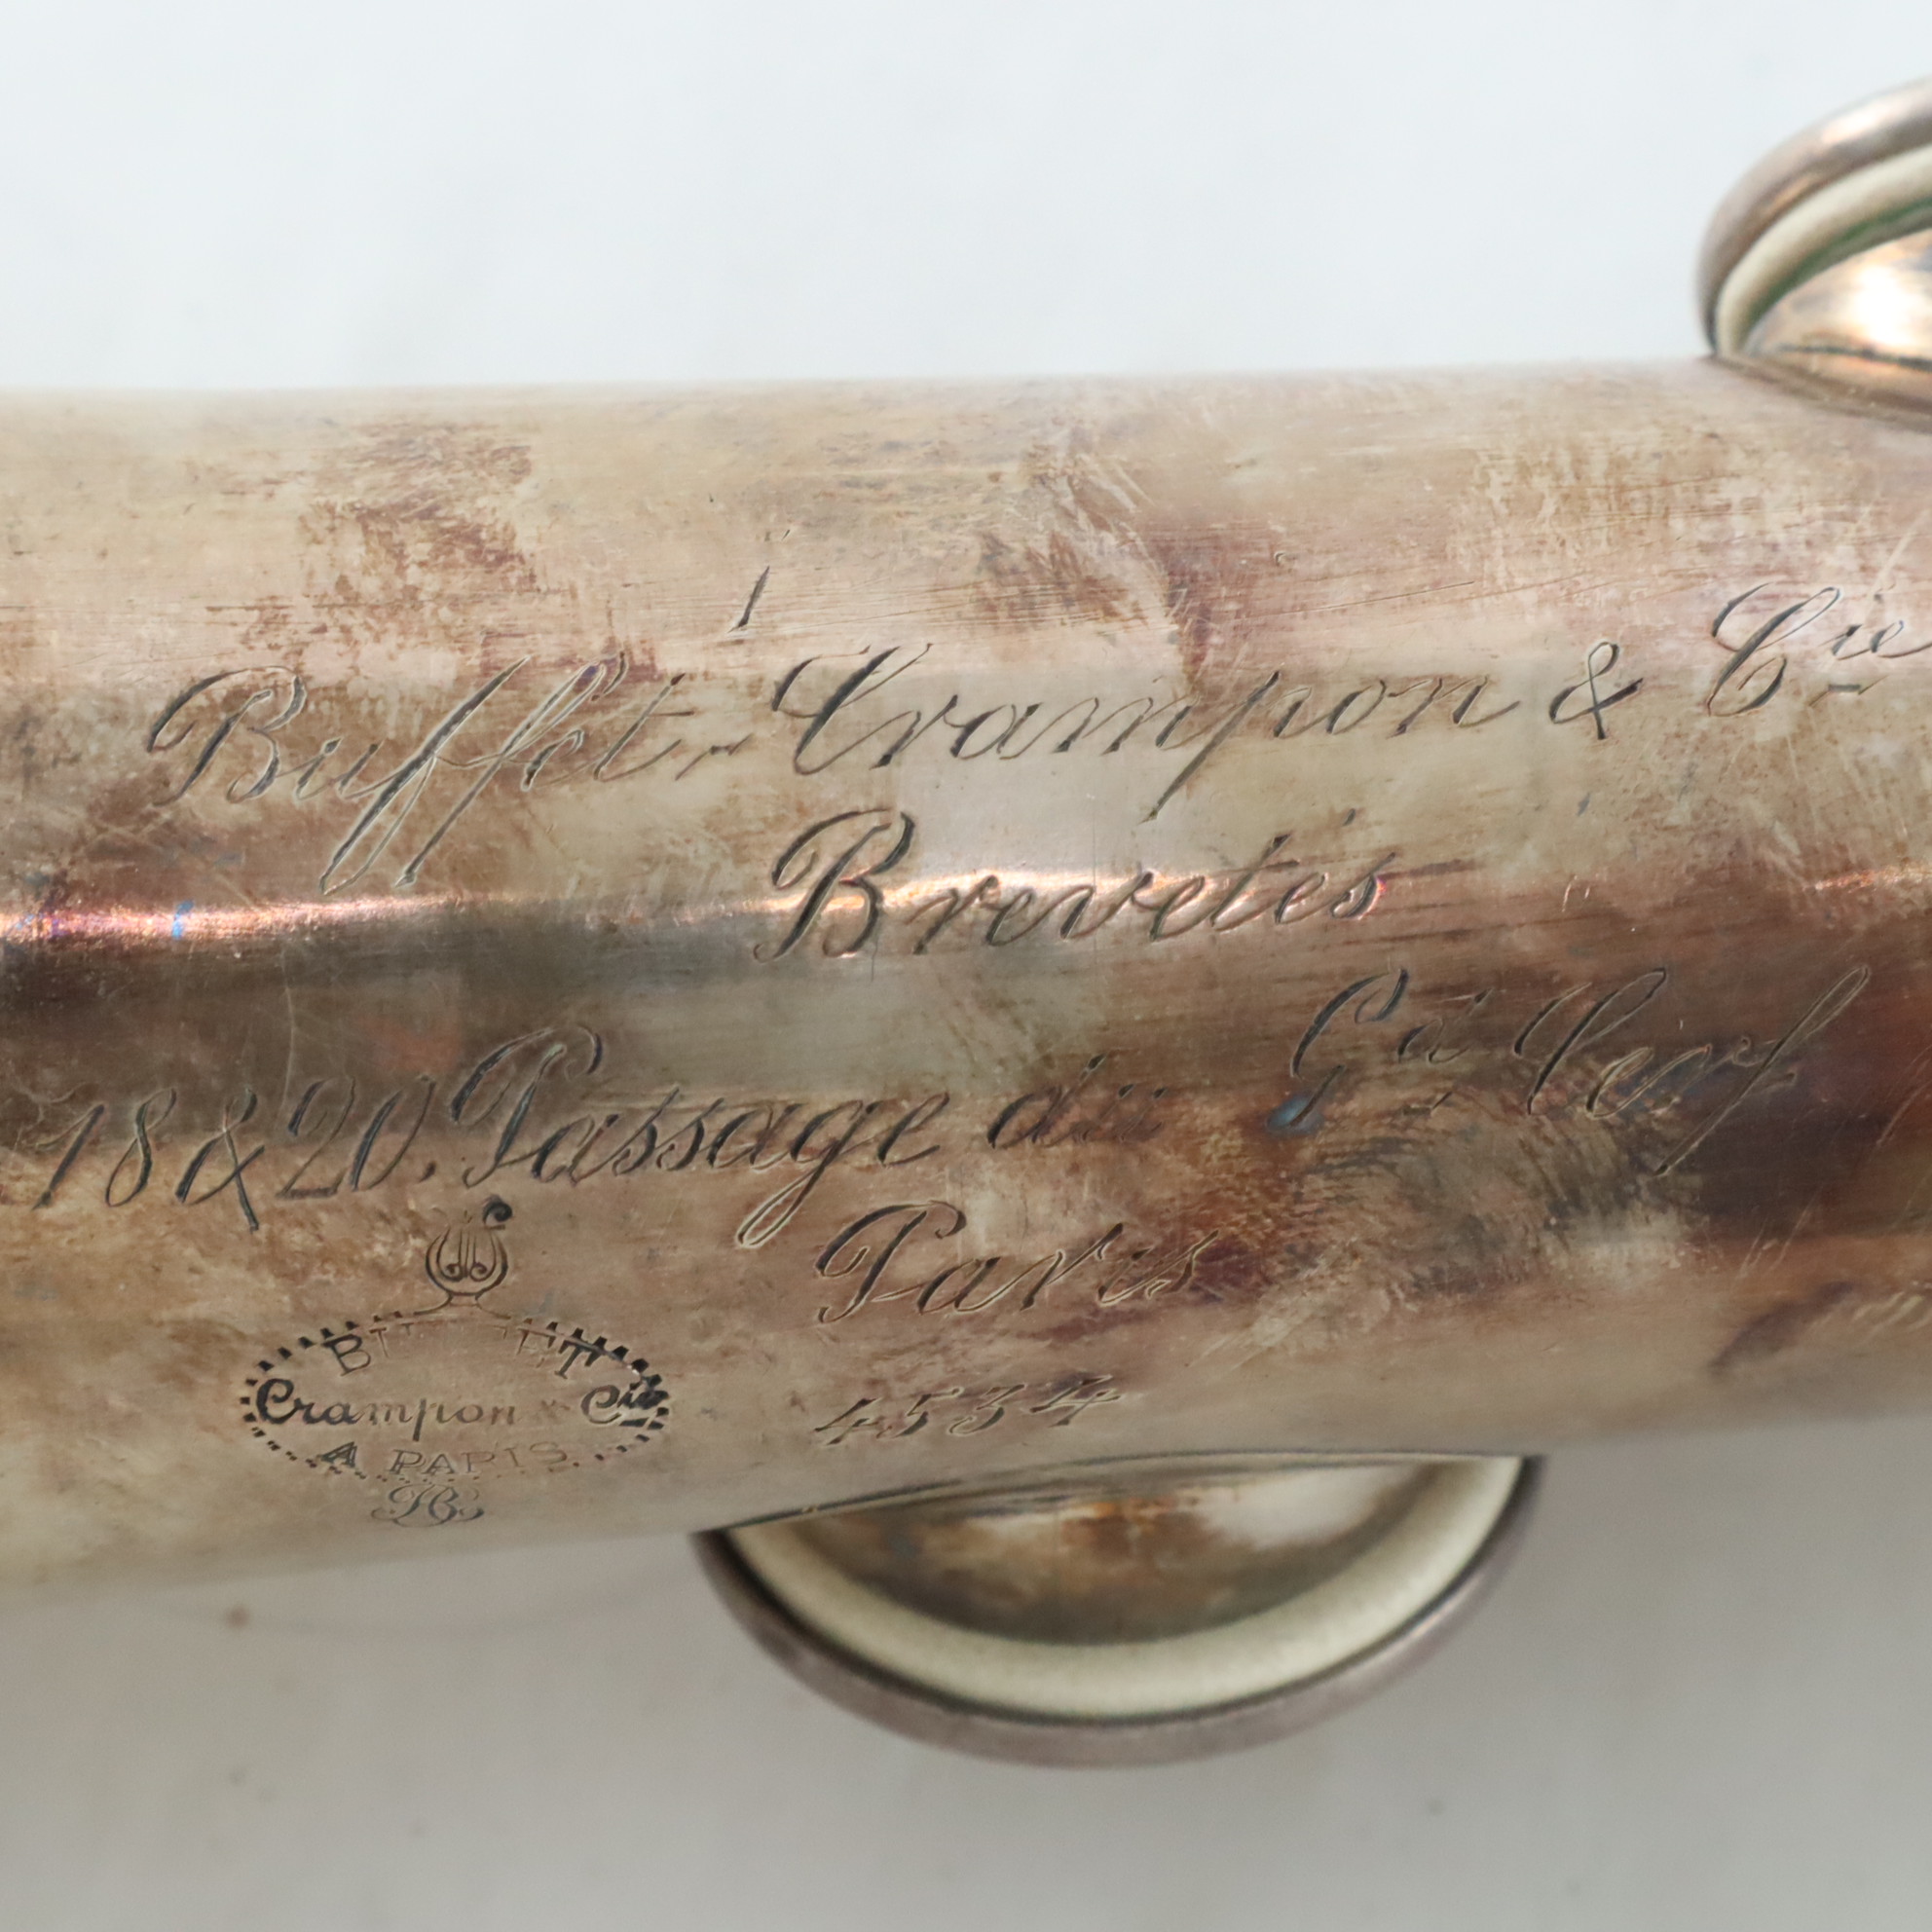 Buffet-Crampon & Cie
Brevetés
18 & 20, Passage du Gd Cerf
Paris
4534
Crampon & Cie
A PARIS